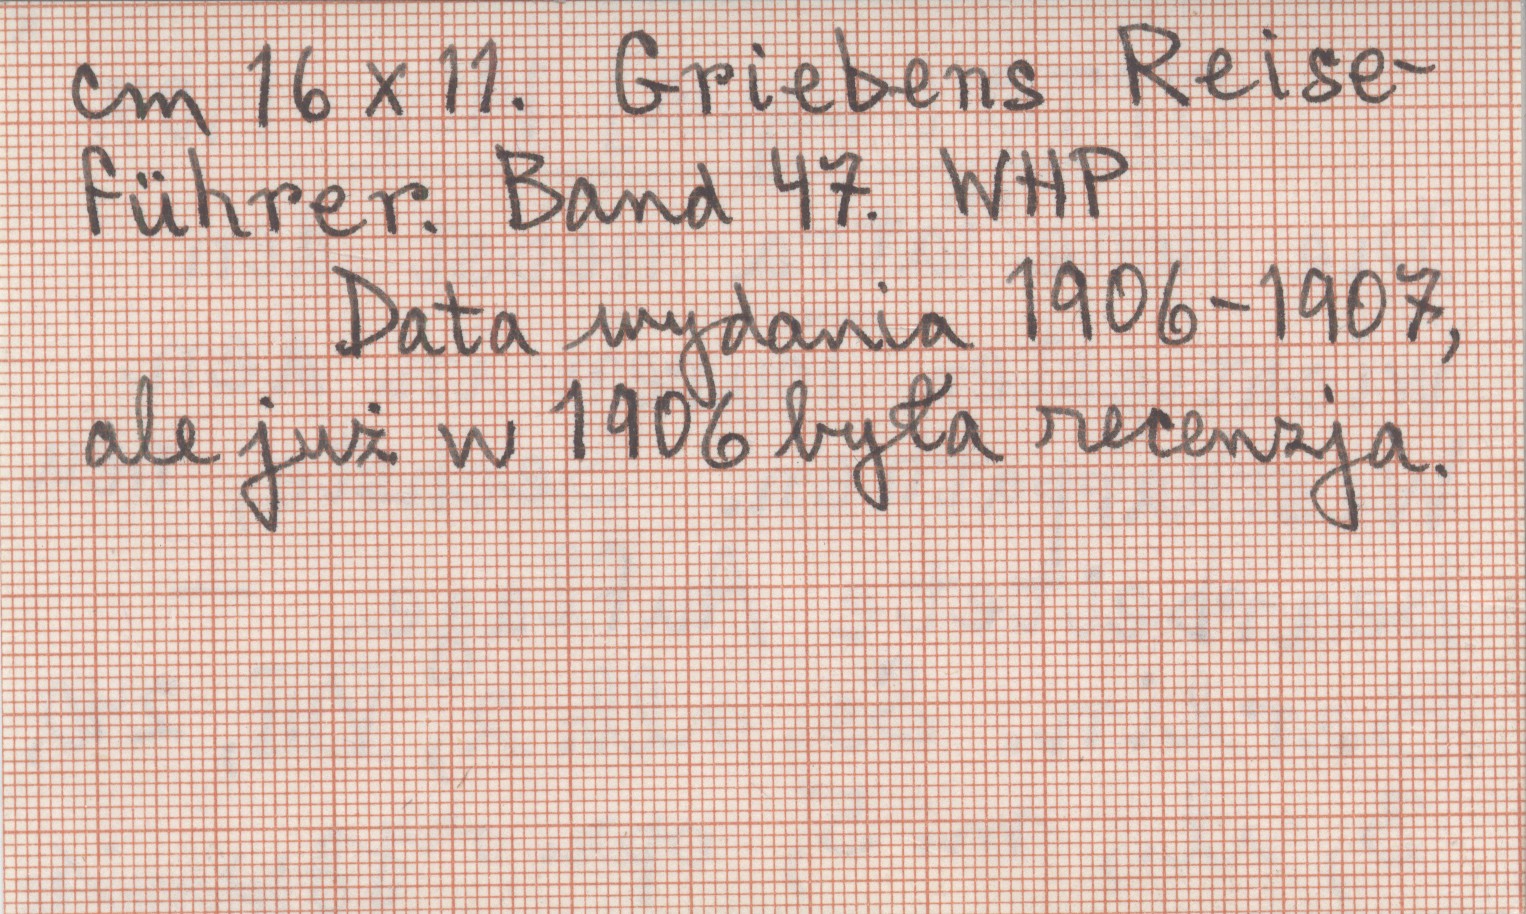 cm 16 x 11. Griebens Reise-
führer. Band 47. WHP
Data wydania 1906-1907,
ale już w 1906 była recenzja.